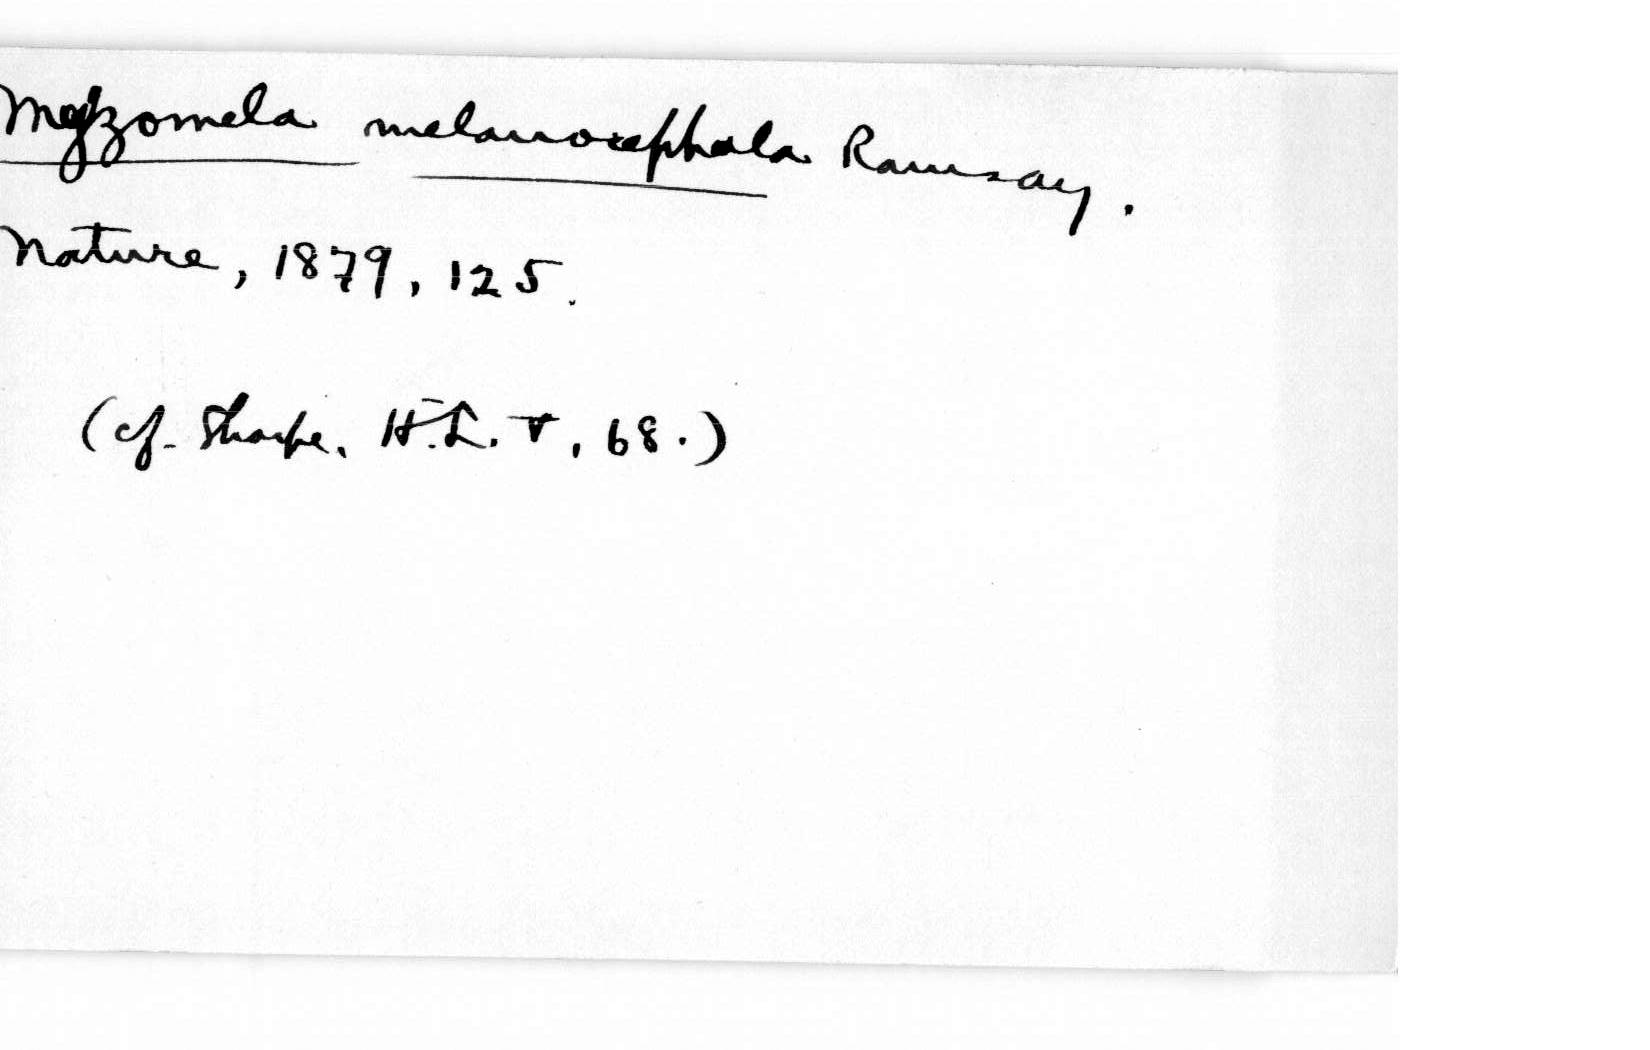 Myzomela melanocephala Ramsay.
Nature, 1879, 125.
(cf. Sharpe, H.L. V, 68.)